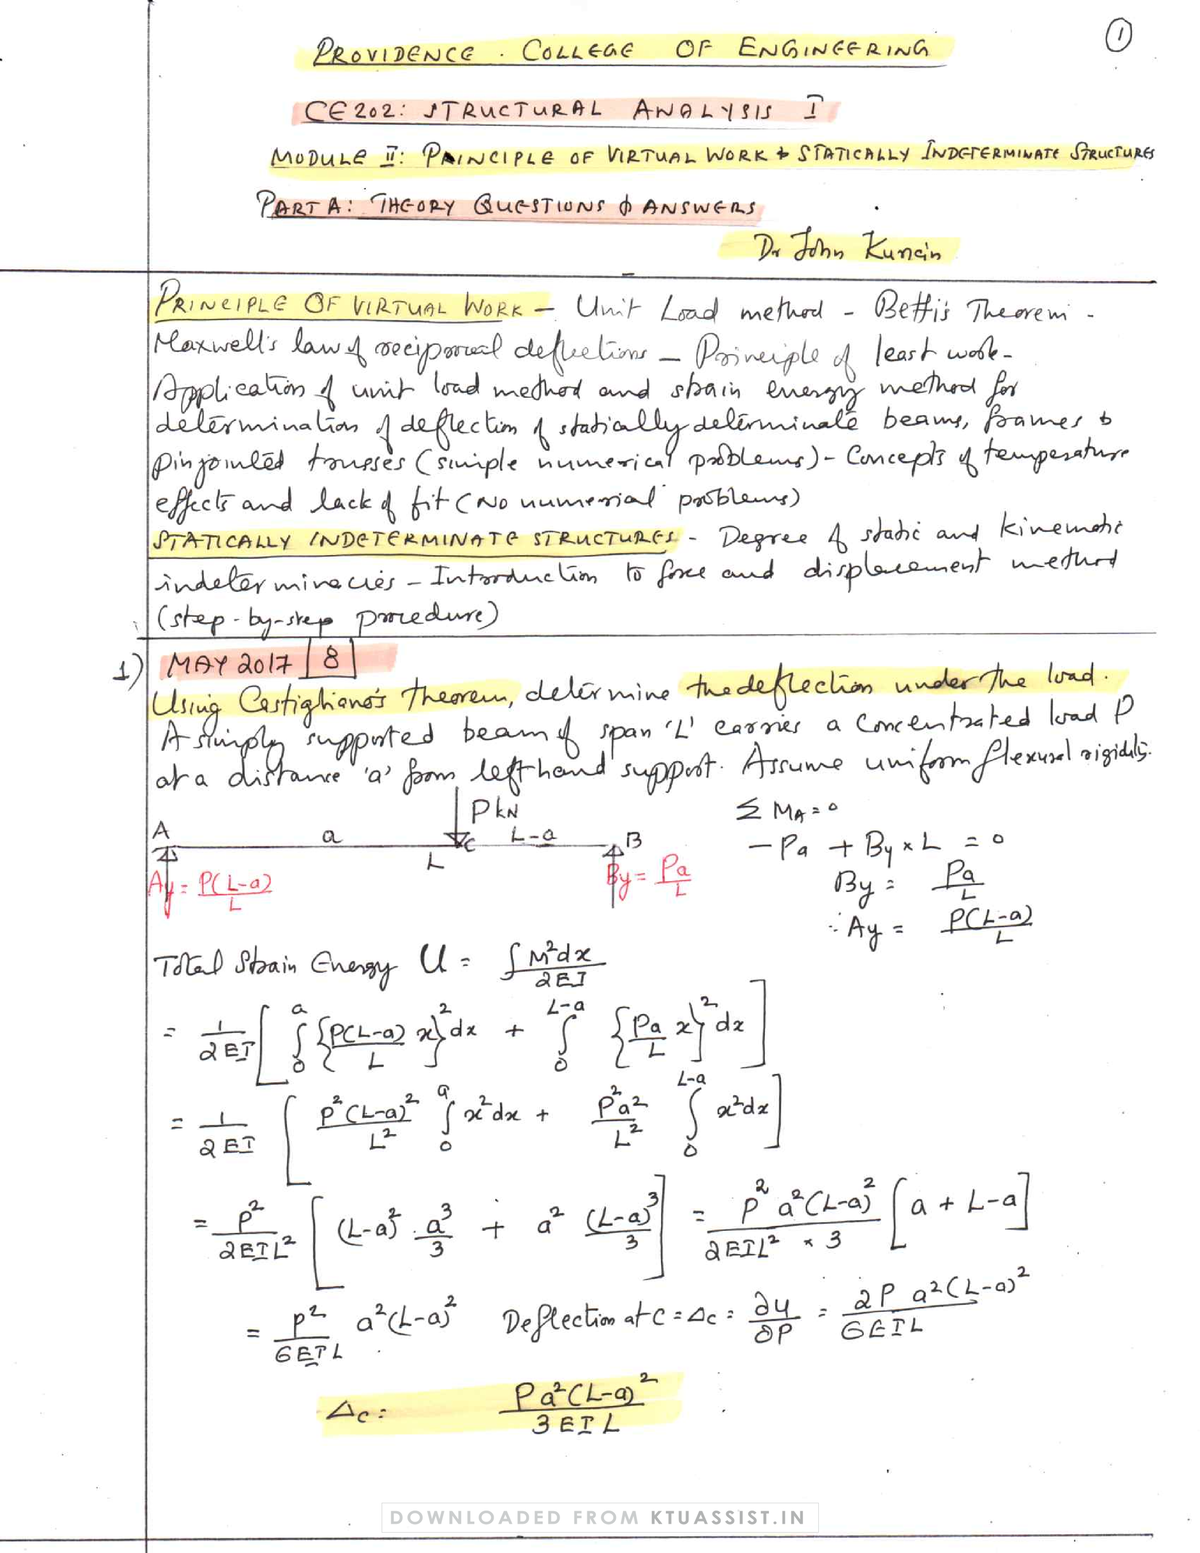 1
PROVIDENCE. COLLEGE OF ENGINEERING
CE202: STRUCTURAL ANALYSIS I
MODULE II: PRINCIPLE OF VIRTUAL WORK & STATICALLY INDETERMINATE STRUCTURES
PART A: THEORY QUESTIONS & ANSWERS
Dr John Kurian
PRINCIPLE OF VIRTUAL WORK – Unit Load method - Betti's Theorem -
Maxwell's law of reciprocal deflections – Principle of least work-
Application of unit load method and strain energy method for
determination of deflection of statically determinate beams, frames &
pin jointed trusses (simple numerical problems) - Concepts of temperature
effects and lack of fit (No numerial problems)
STATICALLY INDETERMINATE STRUCTURES - Degree of static and kinematic
indeterminacies – Introduction to force and displacement method
(step-by-step procedure)
1) MAY 2017 | 8 |
Using Castigliano's Theorem, determine the deflection under the load.
A simply supported beam of span 'L' carries a concentrated load P
at a distance 'a' from left hand support. Assume uniform flexural rigidity.
P kN
A a C L-a B
L
Ay = P(L-a)/L By = Pa/L
Σ MA = 0
-Pa + By × L = 0
By = Pa/L
∴ Ay = P(L-a)/L
Total Strain Energy U = ∫ M²dx/2EI
= 1/2EI [ ∫₀ᵃ {P(L-a)/L x}² dx + ∫₀^(L-a) {Pa/L x}² dx ]
= 1/2EI [ P²(L-a)²/L² ∫₀ᵃ x²dx + P²a²/L² ∫₀^(L-a) x²dx ]
= P²/2EIL² [ (L-a)² . a³/3 + a² (L-a)³/3 ] = P² a²(L-a)²/2EIL² × 3 [a + L-a]
= P²/6EIL a²(L-a)² Deflection at C = Δc = ∂U/∂P = 2P a²(L-a)²/6EIL
Δc = Pa²(L-a)²/3EIL
DOWNLOADED FROM KTUASSIST.IN